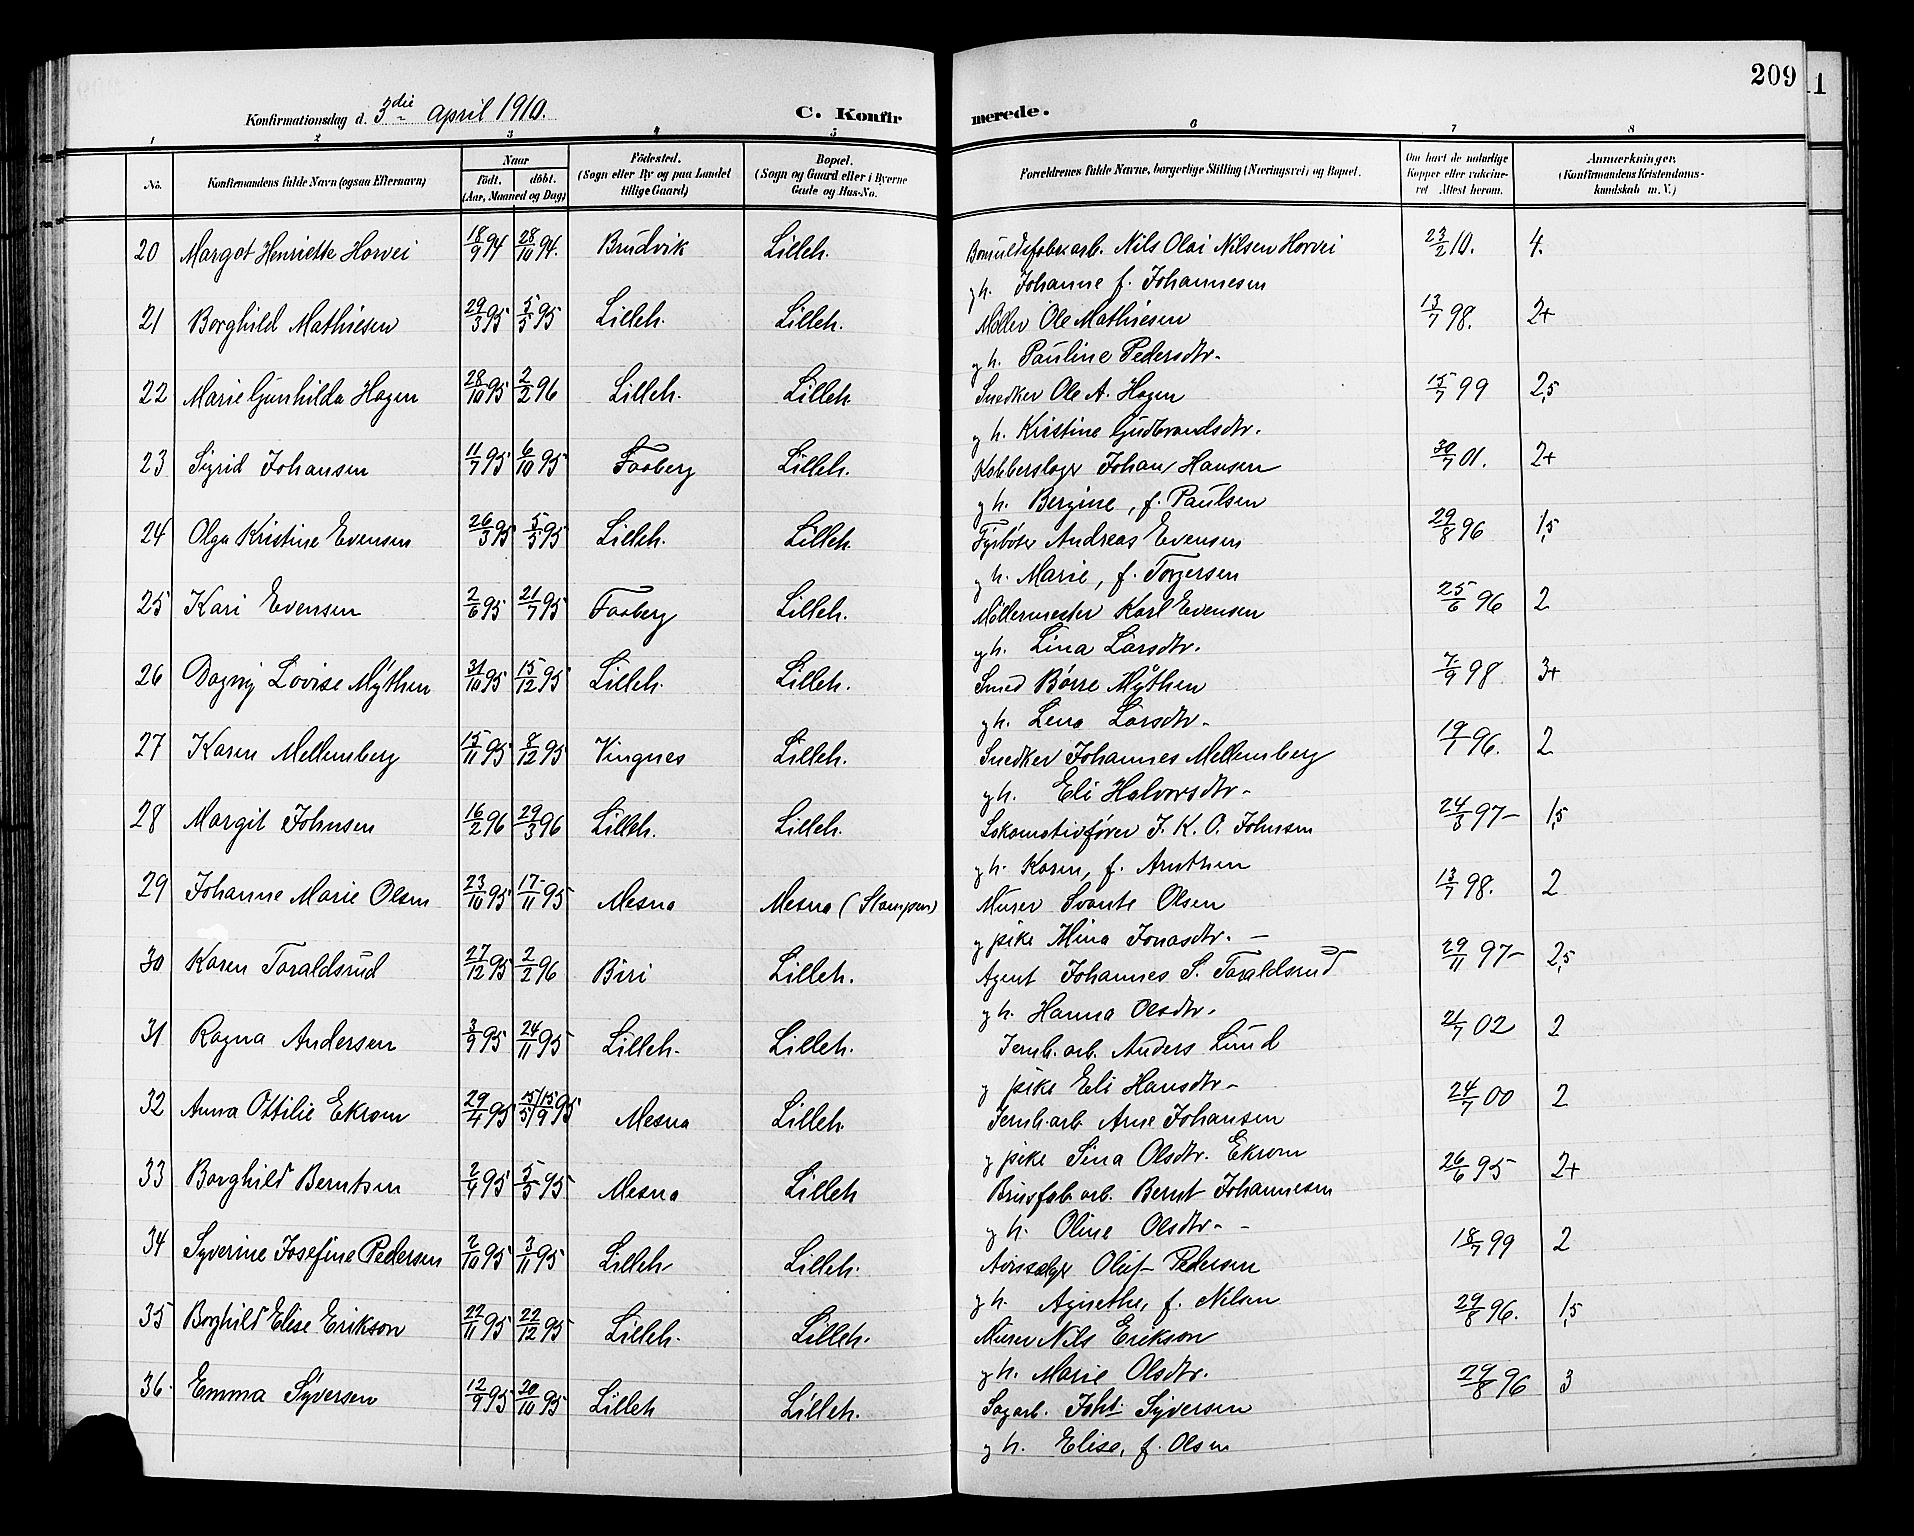 209
Konfirmationsdag d. 3die april 1910.
C. Konfirmerede.
1 2 3 4 5 6 7 8
No.
Konfirmandens fulde Navn (ogsaa Efternavn)
Naar
Født. døbt.
(Aar, Maaned og Dag)
Fødested.
(Sogn eller By og paa Landet
tillige Gaard)
Bopæl.
(Sogn og Gaard eller i Byerne
Gade og Hus-No.
Forældrenes fulde Navne, borgerlige Stilling (Næringsvei) og Bopæl.
Om havt de naturlige
Kopper eller vakcine-
ret Attest herom.
Anmærkninger.
(Konfirmandens Kristendoms-
kundskab m. V.)
20 Margot Henriette Horvei 18/9 94 28/10 94. Brudvik Lilleh. Bomuldsfabrikarb. Nils Olai Nilsen Horvei 23/2 10. 4.
g h. Johanne f. Johannesen
21 Borghild Mathiesen 29/3 95 5/5 95 Lilleh. Lilleh. Møller Ole Mathiesen 13/7 98. 2+
g h. Pauline Pedersdtr.
22 Marie Gunhilda Hagen 28/10 95 2/2 96 Lilleh. Lilleh. Snedker Ole A. Hagen 15/7 99 2,5
g h. Kristine Gudbrandsdtr.
23 Sigrid Johansen 11/7 95 6/10 95 Faaberg Lilleh. Kobberslager Johan Hansen 30/7 01. 2+
g h. Bergine, f. Paulsen
24 Olga Kristine Evensen 26/3 95 5/5 95 Lilleh. Lilleh. Fyrbøter Andreas Evensen 29/8 96 1,5
g h. Marie, f. Torgersen
25 Kari Evensen 2/6 95 21/7 95 Faaberg Lilleh. Møllermester Karl Evensen 25/6 96 2
g h. Lina Larsdtr.
26 Dagny Lovise Mythen 31/10 95 15/12 95 Lilleh. Lilleh. Smed Børre Mythen 7/9 98 3+
g h. Lena Larsdtr.
27 Karen Mellemberg 15/11 95 8/12 95 Vingnes Lilleh. Snedker Johannes Mellemberg 19/7 96. 2
g h. Eli Halvorsdtr.
28 Margit Johnsen 16/2 96 29/3 96 Lilleh. Lilleh. Lokomotivfører J. K. O. Johnsen 24/8 97 1,5
g h. Karen, f. Arntsen
29 Johanne Marie Olsen 23/10 95 17/11 95 Mesna Mesna (Stampen) Murer Svante Olsen 13/7 98. 2
g pike Mina Jonasdtr.
30 Karen Taraldsrud 27/12 95 2/2 96 Biri Lilleh. Agent Johannes S. Taraldsrud 29/11 97 2,5
g h. Hanna Olsdtr.
31 Ragna Andersen 3/9 95 24/11 95 Lilleh. Lilleh. Jernb. arb. Anders Lund 21/7 02 2
g pike Eli Hansdtr.
32 Anna Ottilie Ekrom 29/4 95 15/5 15/9 95 Mesna Lilleh. Jernb. arb. Arne Johansen 24/7 00 2
g pike Sina Olsdtr. Ekrom
33 Borghild Berntsen 2/4 95 5/5 95 Mesna Lilleh Brusfab. arb. Bernt Johannesen 26/6 95 2+
g h. Oline Olsdtr.
34 Syverine Josefine Pedersen 2/10 95 3/11 95 Lilleh Lilleh. Avissælger Oluf Pedersen 18/7 99 2
g h. Agnethe, f. Nilsen
35 Borghild Elise Erikson 22/11 95 22/12 95 Lilleh. Lilleh. Murer Nils Erikson 29/8 96. 1,5
g h. Marie Olsdtr.
36. Emma Syversen 12/9 95 20/10 95 Lilleh Lilleh. Sagarb. Joh. Syversen 29/8 96 3
g h. Elise, f. Olsen